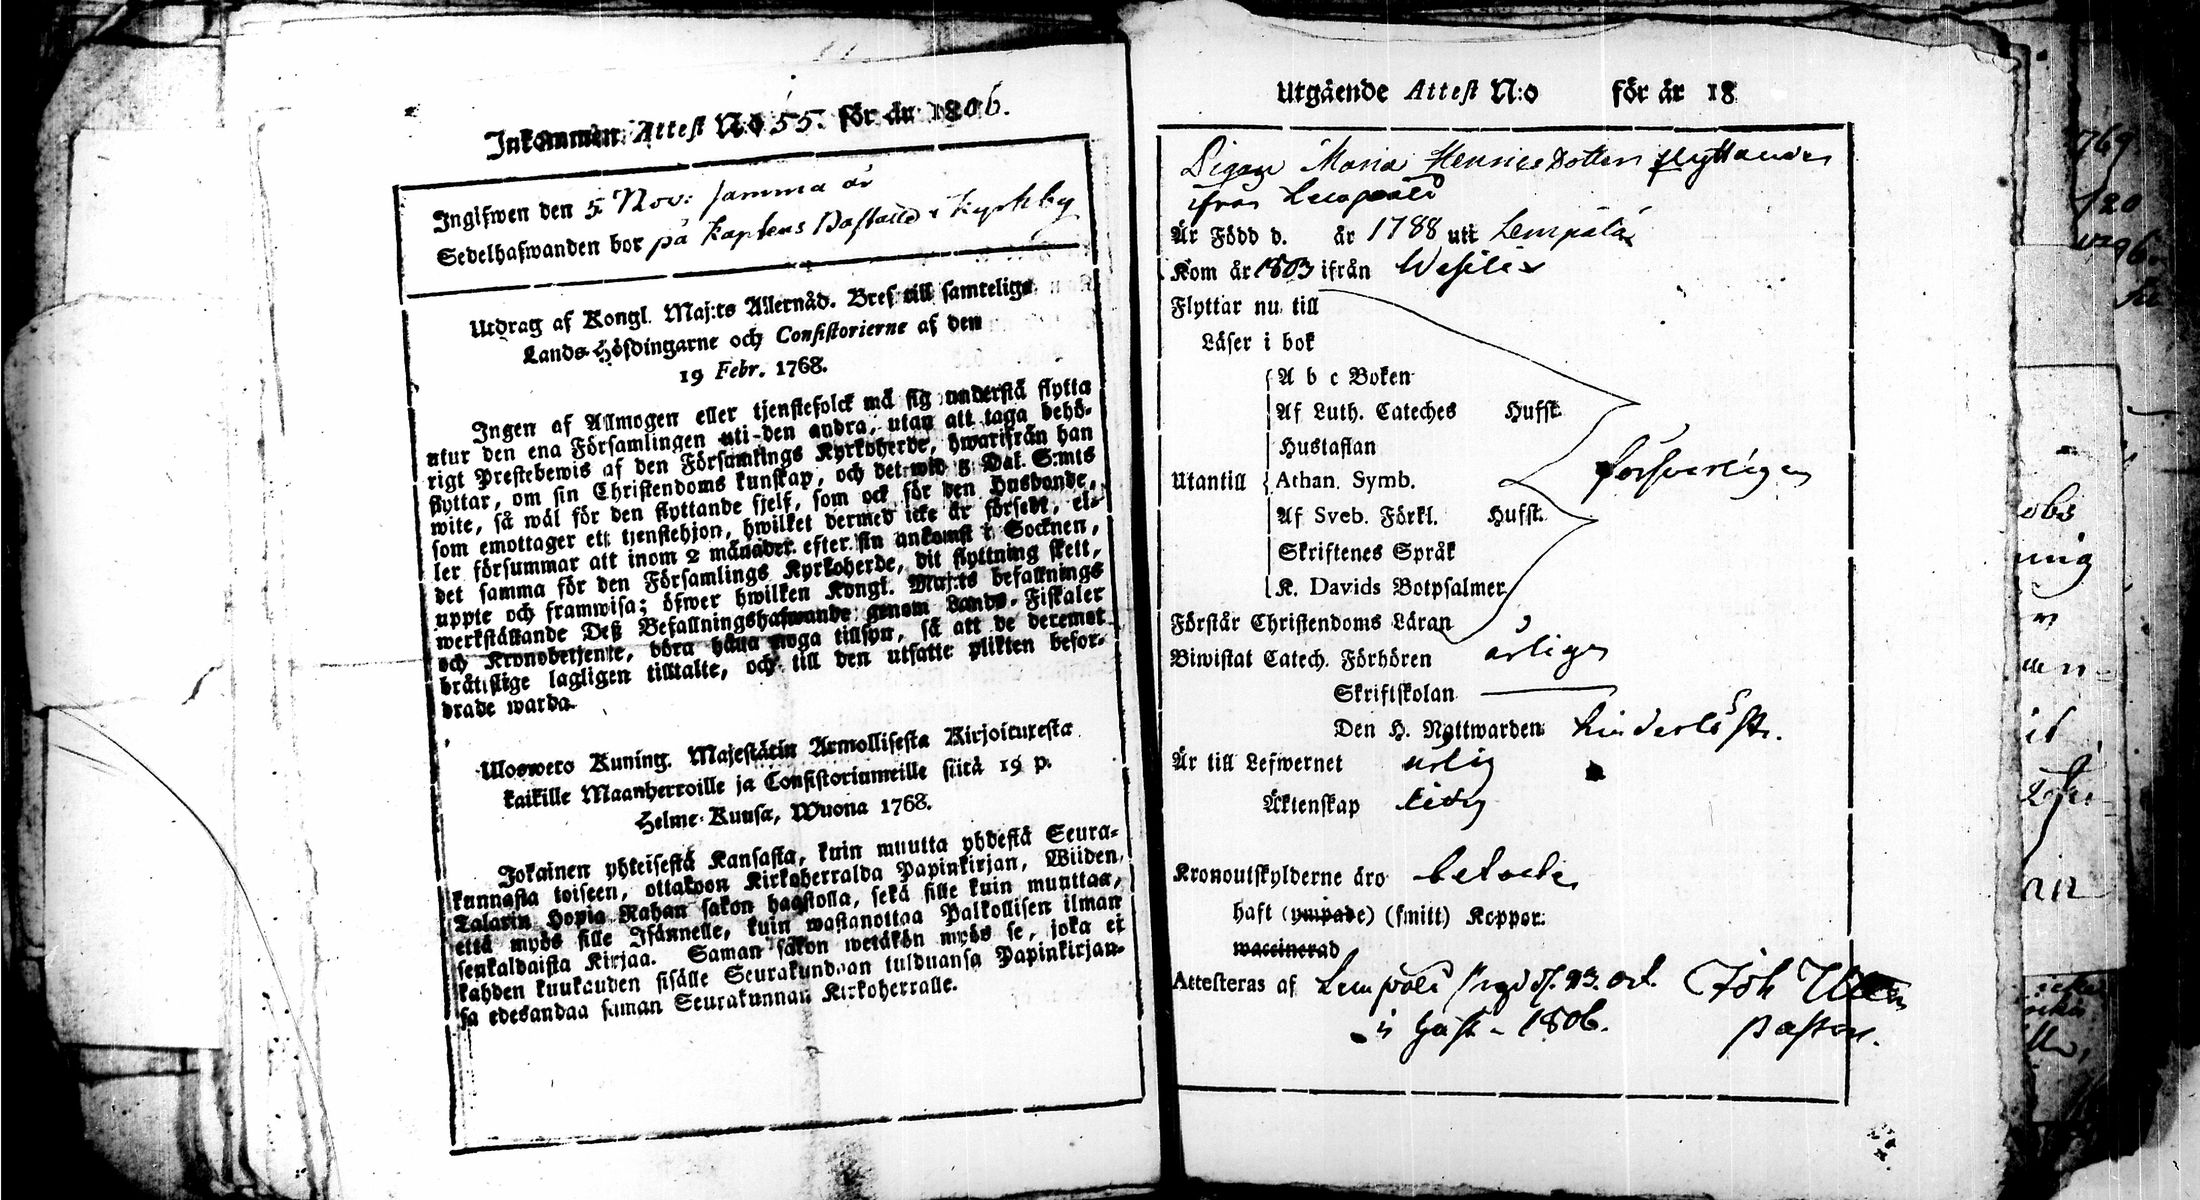 Inkommen Attest N:o 55. för år 1806.
Ingifwen den 5 Nov: samma år
Sedelhafwanden bor på Kaptens Bostället i Kyrkby
Utdrag af Kongl. Maj:ts Allernåd. Bref till samtelige
Lands-Höfdingarne och Consistorierne af den
19 Febr. 1768.
Ingen af Allmogen eller tjenstefolck må sig understå flytta
utur den ena Församlingen uti den andra, utan att taga behö-
rigt Prestebewis af den Församlings Kyrkoherde, hwarifrån han
flyttar, om sin Christendoms kunskap, och det wid 5 Dal. S:mts
wite, så wäl för den flyttande sjelf, som ock för den Husbonde,
som emottager ett tjenstehjon, hwilket dermed icke är försedt, el-
ler försummar att inom 2 månader efter sin ankomst i Socknen,
det samma för den Församlings Kyrkoherde, dit flyttning skett,
uppte och framwisa; öfwer hwilken Kongl. Maj:ts befallnings
werkställande Deß Befallningshafwande genom Lands-Fiskaler
och Kronobetjente, böra hålla noga tillsyn, så att de deremot
bråtislige lagligen tilltalte, och till den utsatte plikten befor-
drade warda.
Ulosweto Kuning. Majestätin Armollisesta Kirjoituxesta
kaikille Maanherroille ja Consistoriumeille siitä 19 p.
Helme-Kuusa, Wuona 1768.
Jokainen yhteisestä Kansasta, kuin muutta yhdestä Seura-
kunnasta toiseen, ottakoon Kirkoherralda Papinkirjan, Wiiden
Talarin Hopia Rahan sakon haastolla, sekä sille kuin muuttaa,
että myös sille Isännelle, kuin wastanottaa Palkollisen ilman
senkaldaista Kirjaa. Saman sakon wetäkön myös se, joka ei
kahden kuukauden sisälle Seurakundaan tulduansa Papinkirjan-
sa edesandaa saman Seurakunnan Kirkoherralle.
Utgående Attest N:o för år 18
Pigan Maria Henricsdotter flyttandes
ifrån Lempälä
Är Född d. år 1788 uti Lempälä
Kom år 1803 ifrån Wesilax
Flyttar nu till
Läser i bok
A b c Boken
Af Luth. Cateches Hufst.
Hustaflan
Utantill Athan. Symb. försvarligen
Af Sveb. Förkl. Hufst.
Skriftenes Språk
K. Davids Botpsalmer
Förstår Christendoms Läran
Biwistat Catech. Förhören årligen
Skriftskolan
Den H. Nattwarden hinderlöst.
Är till Lefwernet ärlig
Äktenskap ledig
Kronoutskylderne äro betalde
haft (ympade) (smitt) Koppor.
waccinerad
Attesteras af Lempälä d. 23. Oct. Joh
1806. Pastor.